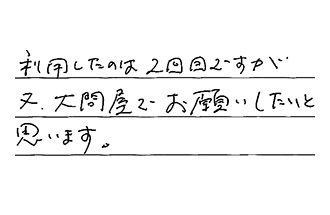 利用したのは2回目ですが
又、大問屋でお願いしたいと
思います。